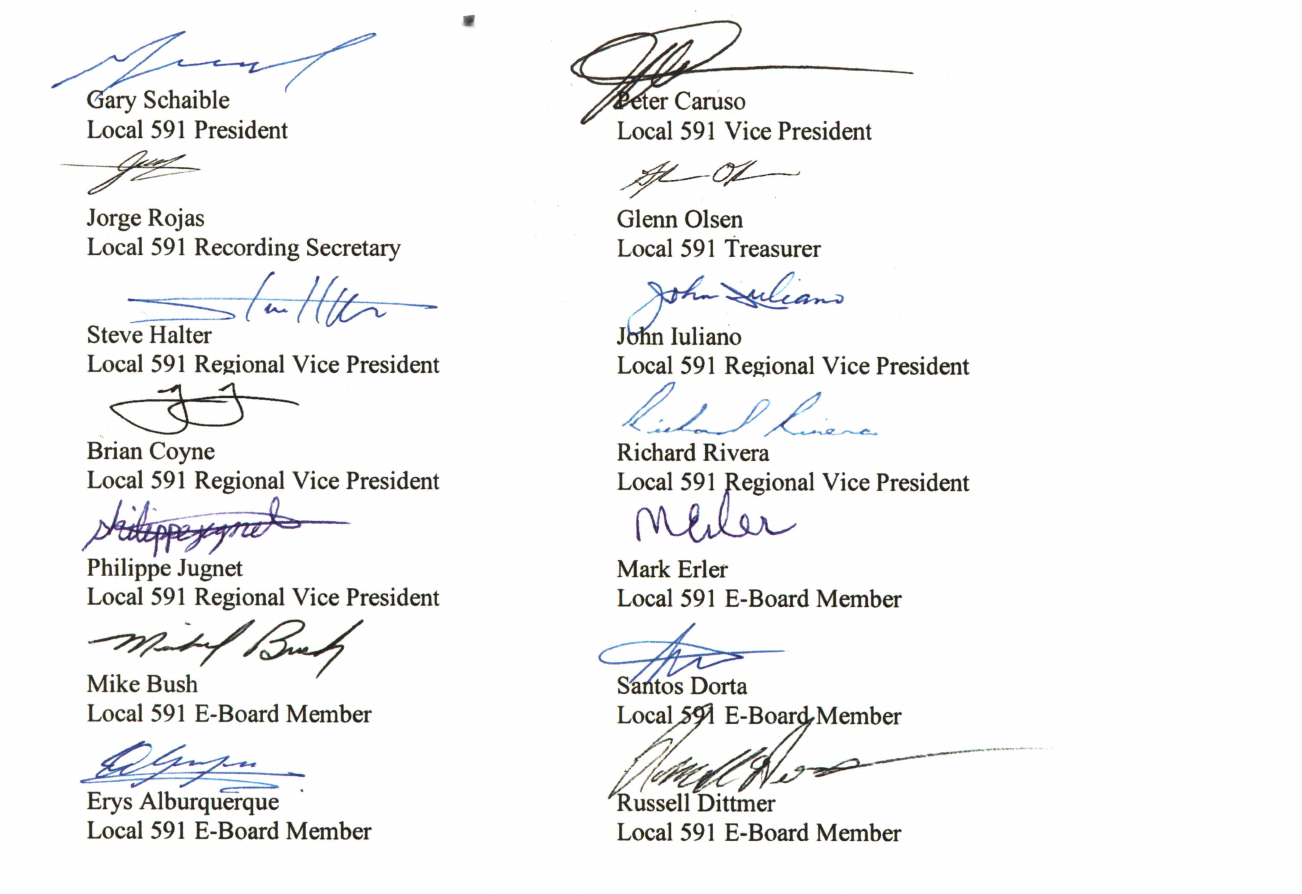 Gary Schaible
Local 591 President
Peter Caruso
Local 591 Vice President
Jorge Rojas
Local 591 Recording Secretary
Glenn Olsen
Local 591 Treasurer
Steve Halter
Local 591 Regional Vice President
John Iuliano
John Iuliano
Local 591 Regional Vice President
Brian Coyne
Local 591 Regional Vice President
Richard Rivera
Richard Rivera
Local 591 Regional Vice President
philippe jugnet
Philippe Jugnet
Local 591 Regional Vice President
MErler
Mark Erler
Local 591 E-Board Member
Michael Bush
Mike Bush
Local 591 E-Board Member
Santos Dorta
Local 591 E-Board Member
Erys Alburquerque
Local 591 E-Board Member
Russell Dittmer
Local 591 E-Board Member